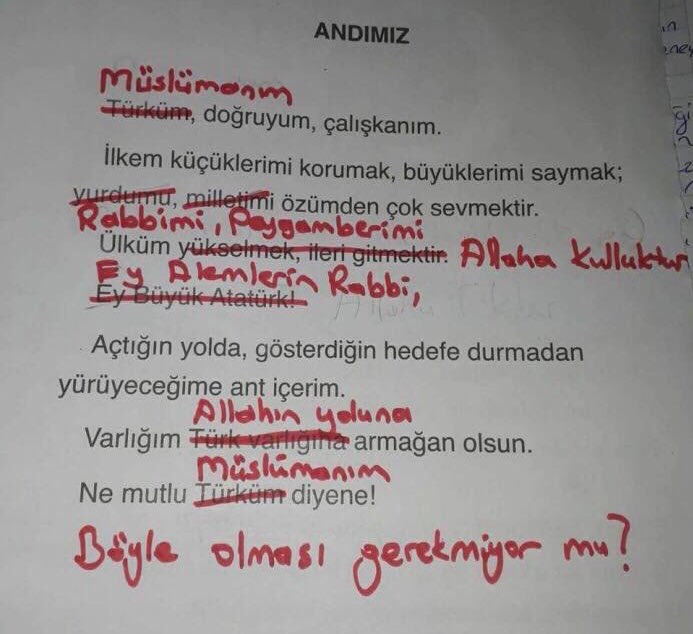 ANDIMIZ
Müslümanım
Türküm, doğruyum, çalışkanım.
İlkem küçüklerimi korumak, büyüklerimi saymak;
yurdumu, milletimi özümden çok sevmektir.
Rabbimi, Peygamberimi
Ülküm yükselmek, ileri gitmektir. Allaha kulluktur
Ey Alemlerin Rabbi,
Ey Büyük Atatürk!
Açtığın yolda, gösterdiğin hedefe durmadan
yürüyeceğime ant içerim.
Allahın yoluna
Varlığım Türk varlığına armağan olsun.
Müslümanım
Ne mutlu Türküm diyene!
Böyle olması gerekmiyor mu?